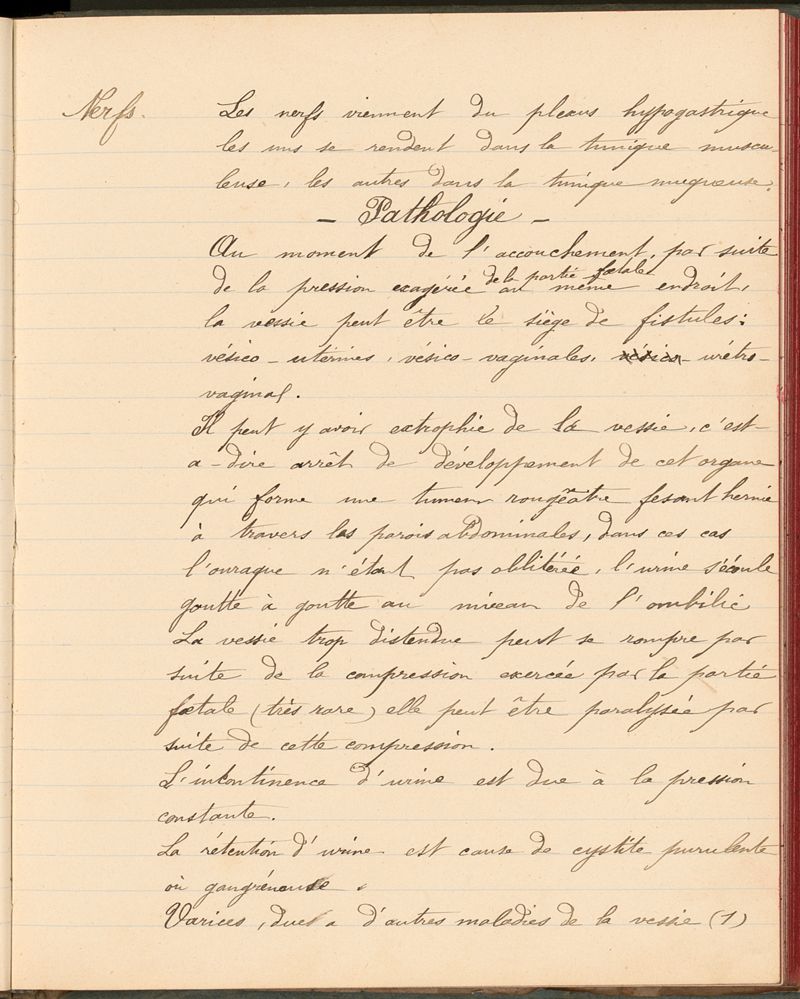 Nerfs. Les nerfs viennent du plexus hypogastrique
les uns se rendent dans la tunique muscu
leuse, les autres dans la tunique muqueuse.
- Pathologie -
Au moment de l'accouchement, par suite
de la partie fœtale
de la pression exagérée au même endroit,
la vessie peut être le siège de fistules:
vésico-utérines, vésico-vaginales, vésico-urétro-
vaginal.
Il peut y avoir extrophie de la vessie, c'est-
a-dire arrêt de développement de cet organe
qui forme une tumeur rougeâtre fesant hernie
à travers les parois abdominales, dans ces cas
l'ouraque n'étant pas oblitérée, l'urine s'écoule
goutte à goutte au niveau de l'ombilic
La vessie trop distendue peut se rompre par
suite de la compression exercée par la partie
fœtale (très rare) elle peut être paralysée par
suite de cette compression.
L'incontinence d'urine est due à la pression
constante.
La rétention d'urine est cause de cystite purulente
où gangréneuse.
Varices, dues a d'autres maladies de la vessie (1)